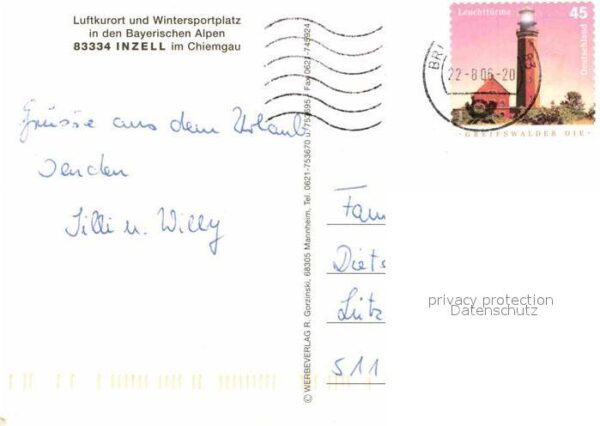 Luftkurort und Wintersportplatz
in den Bayerischen Alpen
83334 INZELL im Chiemgau
Grüsse aus dem Urlaub
senden
Silli u. Willy
© WERBEVERLAG R. Gorzinski, 68305 Mannheim, Tel. 0621-753670 u. 753695, Fax 0621-745924
Leuchttürme 45
Deutschland
GREIFSWALDER OIE
BRI
22-8.06-20
Fam
Diets
Lütz
511
privacy protection
Datenschutz